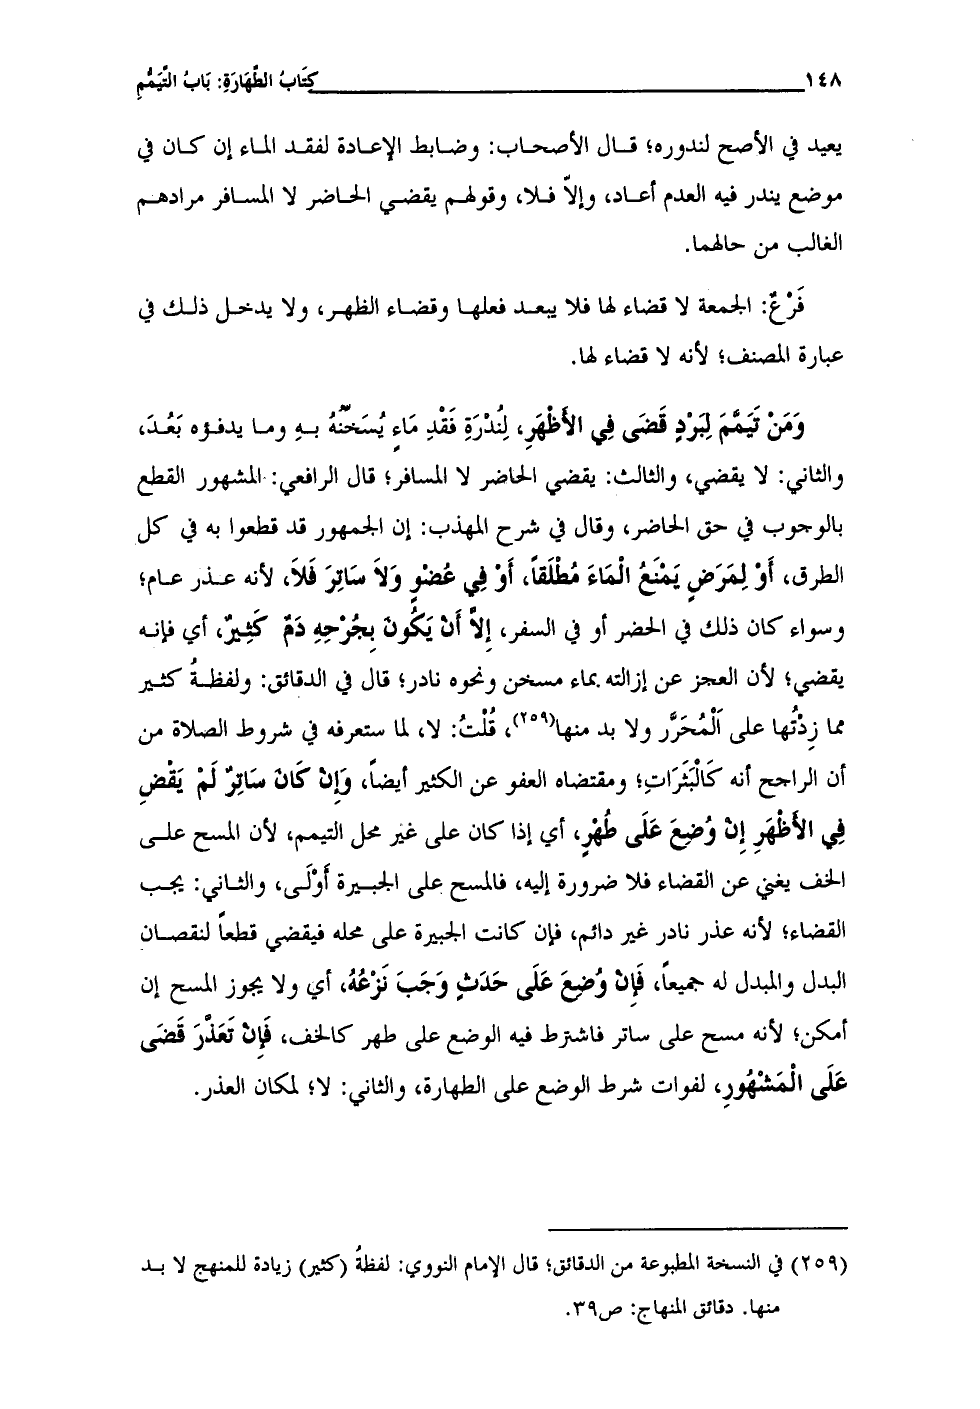 ١٤٨ كِتَابُ الطَّهَارَةِ: بَابُ التَّيَمُّمِ
يعيد في الأصح لندوره؛ قال الأصحاب: وضابط الإعادة لفقد الماء إن كان في
موضع يندر فيه العدم أعاد، وإلاّ فلا، وقولهم يقضي الحاضر لا المسافر مرادهم
الغالب من حالهما.
فَرْعٌ: الجمعة لا قضاء لها فلا يبعد فعلها وقضاء الظهر، ولا يدخل ذلك في
عبارة المصنف؛ لأنه لا قضاء لها.
وَمَنْ تَيَمَّمَ لِبَرْدٍ قَضَى فِي الأَظْهَرِ، لِنُدْرَةِ فَقْدِ مَاءٍ يُسَخِّنُهُ بهِ وما يدفؤه بَعُدَ،
والثاني: لا يقضي، والثالث: يقضي الحاضر لا المسافر؛ قال الرافعي: المشهور القطع
بالوجوب في حق الحاضر، وقال في شرح المهذب: إن الجمهور قد قطعوا به في كل
الطرق، أَوْ لِمَرَضٍ يَمْنَعُ الْمَاءَ مُطْلَقاً، أَوْ فِي عُضْوٍ وَلاَ سَاتِرَ فَلاَ، لأنه عذر عام؛
وسواء كان ذلك في الحضر أو في السفر، إِلاَّ أَنْ يَكُونَ بِجُرْحِهِ دَمٌ كَثِيرٌ، أي فإنه
يقضي؛ لأن العجز عن إزالته بماء مسخن ونحوه نادر؛ قال في الدقائق: ولفظةُ كثير
مما زِدْتُها على اَلْمُحَرَّر ولا بد منها(٢٥٩)، قُلْتُ: لا، لما ستعرفه في شروط الصلاة من
أن الراجح أنه كَالْبَثَرَاتِ؛ ومقتضاه العفو عن الكثير أيضاً، وَإِنْ كَانَ سَاتِرٌ لَمْ يَقْضِ
فِي الأَظْهَرِ إِنْ وُضِعَ عَلَى طُهْرٍ، أي إذا كان على غير محل التيمم، لأن المسح على
الخف يغني عن القضاء فلا ضرورة إليه، فالمسح على الجبيرة أَوْلَى، والثاني: يجب
القضاء؛ لأنه عذر نادر غير دائم، فإن كانت الجبيرة على محله فيقضي قطعاً لنقصان
البدل والمبدل له جميعاً، فَإِنْ وُضِعَ عَلَى حَدَثٍ وَجَبَ نَزْعُهُ، أي ولا يجوز المسح إن
أمكن؛ لأنه مسح على ساتر فاشترط فيه الوضع على طهر كالخف، فَإِنْ تَعَذَّرَ قَضَى
عَلَى الْمَشْهُورِ، لفوات شرط الوضع على الطهارة، والثاني: لا؛ لمكان العذر.
(٢٥٩) في النسخة المطبوعة من الدقائق؛ قال الإمام النووي: لفظةُ (كثير) زيادة للمنهج لا بد
منها. دقائق المنهاج: ص٣٩.